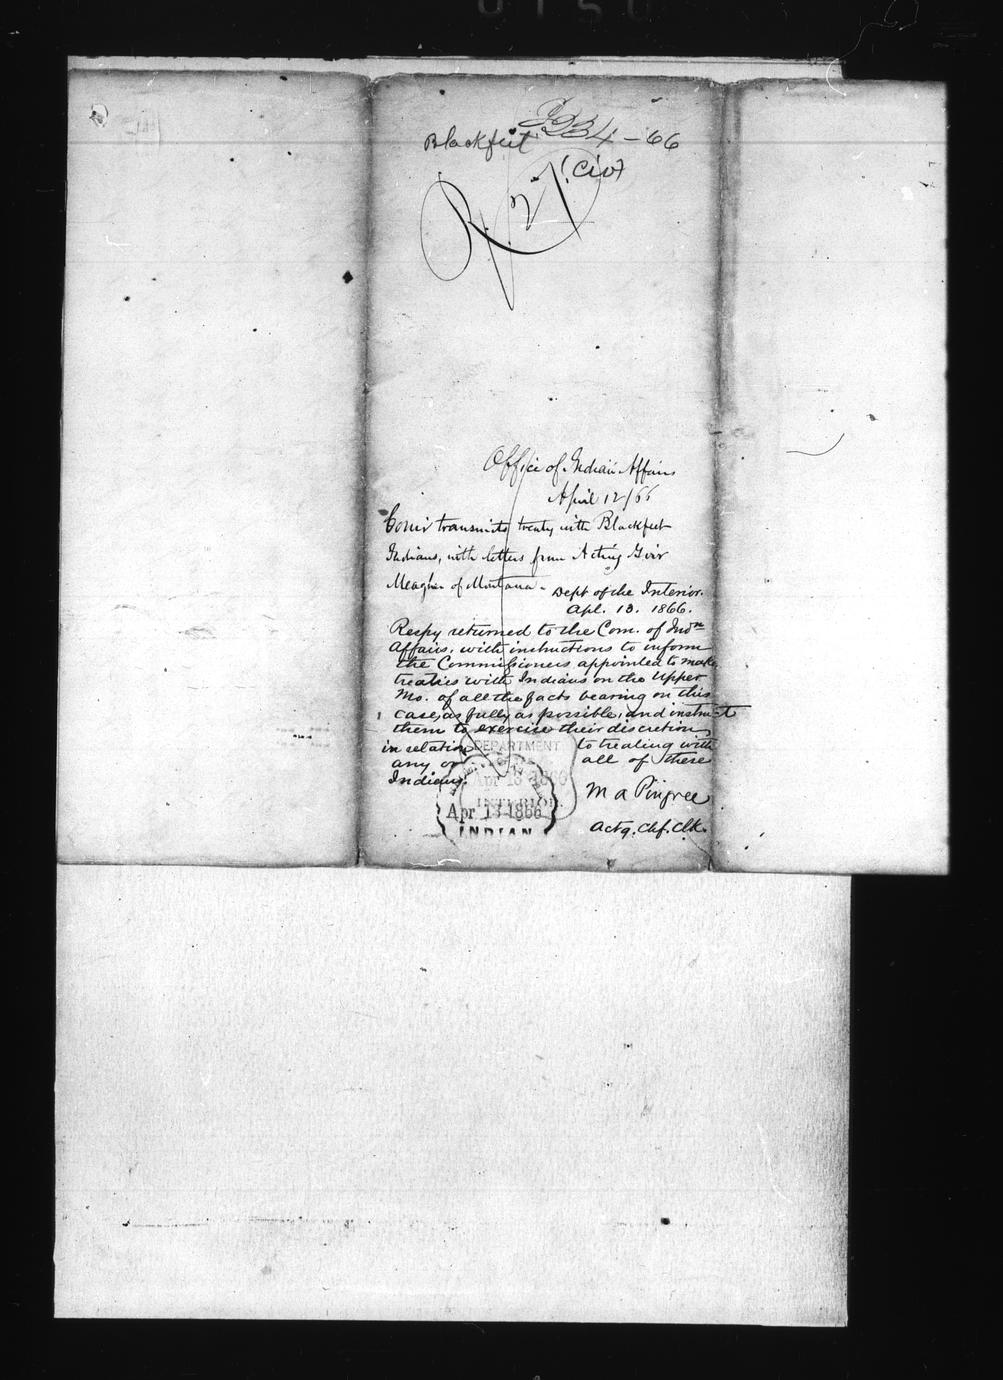 Blackfeet I234-66
(Civ)
R 27
Office of Indian Affairs
April 12/66
Comr transmits treaty with Blackfeet
Indians, with letters from Acting Govr
Meagher of Montana.
Dept of the Interior.
Apl. 13. 1866.
Respy returned to the Com. of Indn
Affairs, with instructions to inform
the Commissioners appointed to make
treaties with Indians on the Upper
Mo. of all the facts bearing on this
case, as fully as possible, and instruct
them to exercise their discretion
in relation to treating with
any or all of these
Indians.
M a Pingree
actg. Chf. Clk.
DEPARTMENT
Apr 13 1866
INTERIOR.
Apr 13 1866
INDIAN